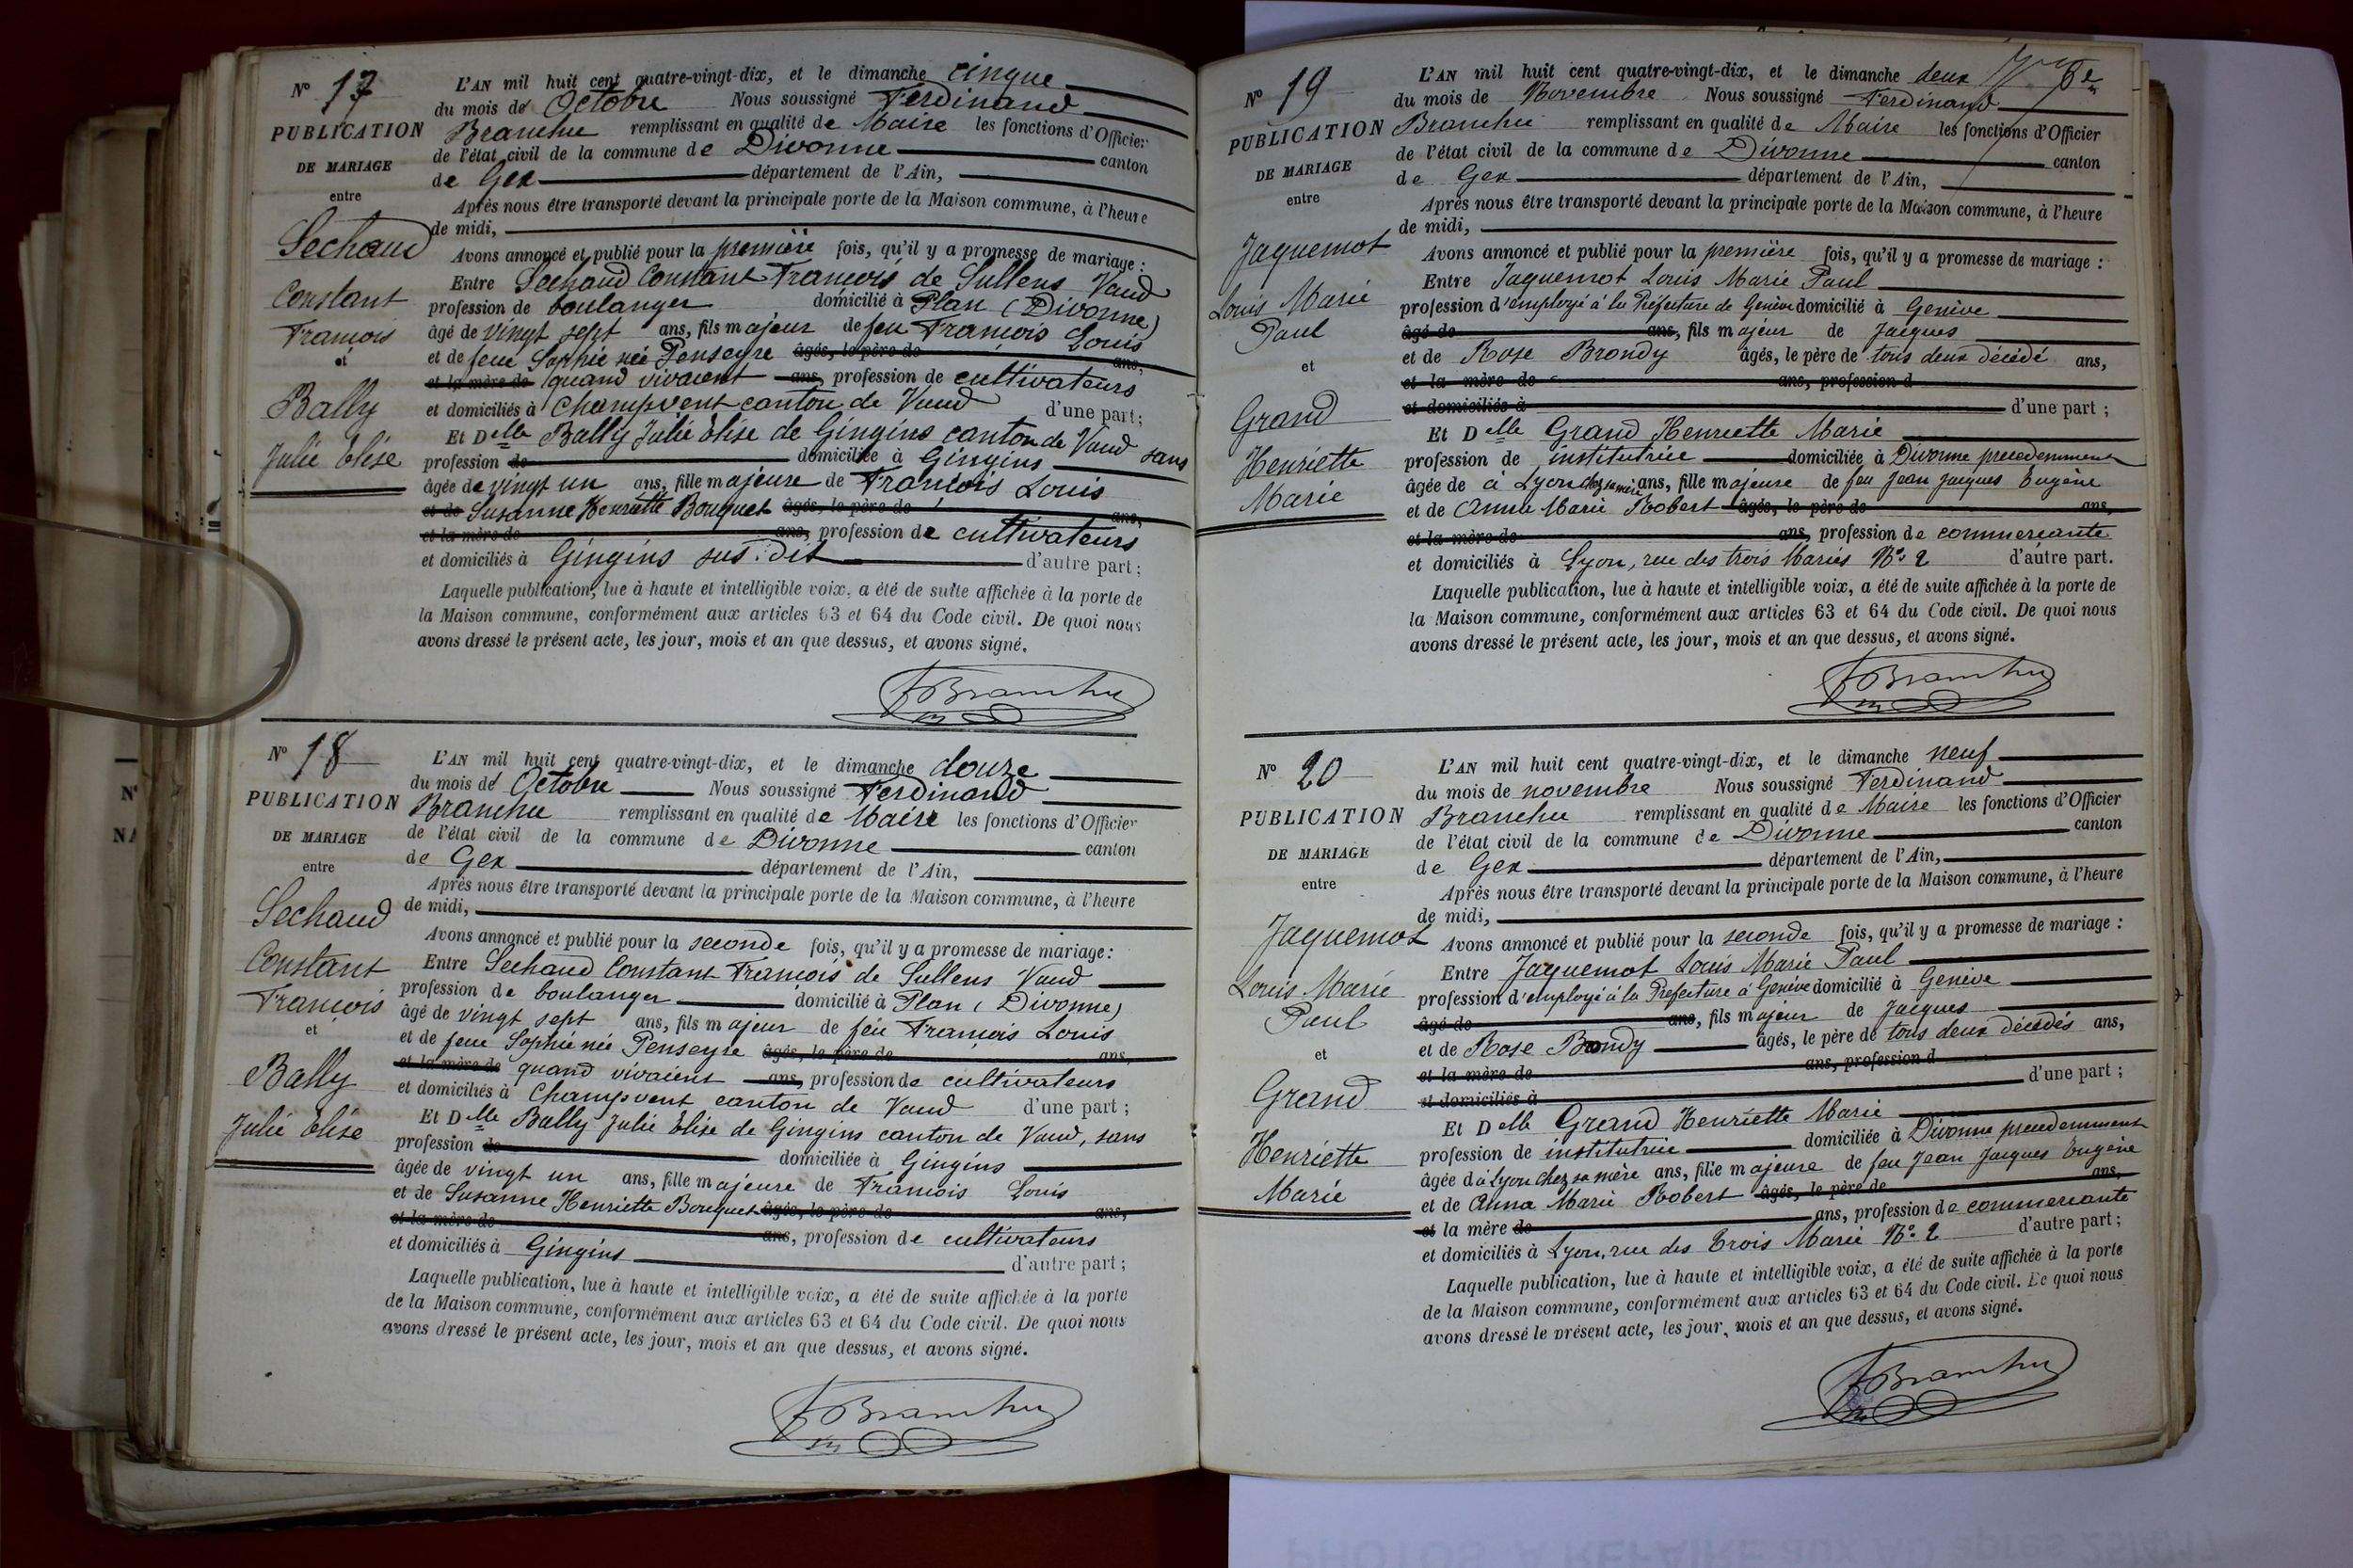 N° 17
PUBLICATION
DE MARIAGE
entre
Sechaud
Constant
Francois
et
Bally
Julie Elise
L'AN mil huit cent quatre-vingt-dix, et le dimanche cinque
du mois de Octobre Nous soussigné Ferdinand
Branchu remplissant en qualité de Maire les fonctions d'Officier
de l'état civil de la commune de Divonne canton
de Gex département de l'Ain,
Après nous être transporté devant la principale porte de la Maison commune, à l'heure
de midi,
Avons annoncé et publié pour la première fois, qu'il y a promesse de mariage :
Entre Sechaud Constant Francois de Sullens Vaud
profession de boulanger domicilié à Plan (Divonne)
âgé de vingt sept ans, fils majeur de feu Francois Louis
et de feue Sophie née Penseyre âgés, le père de ans,
et la mère de quand vivaient ans, profession de cultivateurs
et domiciliés à Champvent canton de Vaud d'une part ;
Et Delle Bally Julie Elise de Gingins canton de Vaud sans
profession de domiciliée à Gingins
âgée de vingt un ans, fille majeure de Francois Louis
et de Susanne Henriette Bouquet âgés, le père de ans,
et la mère de ans, profession de cultivateurs
et domiciliés à Gingins sus-dit d'autre part ;
Laquelle publication, lue à haute et intelligible voix, a été de suite affichée à la porte de
la Maison commune, conformément aux articles 63 et 64 du Code civil. De quoi nous
avons dressé le présent acte, les jour, mois et an que dessus, et avons signé.
FBranchu
N° 18
PUBLICATION
DE MARIAGE
entre
Sechaud
Constant
Francois
et
Bally
Julie Elise
L'AN mil huit cent quatre-vingt-dix, et le dimanche douze
du mois de Octobre Nous soussigné Ferdinand
Branchu remplissant en qualité de Maire les fonctions d'Officier
de l'état civil de la commune de Divonne canton
de Gex département de l'Ain,
Après nous être transporté devant la principale porte de la Maison commune, à l'heure
de midi,
Avons annoncé et publié pour la seconde fois, qu'il y a promesse de mariage :
Entre Sechaud Constant Francois de Sullens Vaud
profession de boulanger domicilié à Plan (Divonne)
âgé de vingt sept ans, fils majeur de feu Francois Louis
et de feue Sophie née Penseyre âgés, le père de ans,
et la mère de quand vivaient ans, profession de cultivateurs
et domiciliés à Champvent canton de Vaud d'une part ;
Et Delle Bally Julie Elise de Gingins canton de Vaud, sans
profession de domiciliée à Gingins
âgée de vingt un ans, fille majeure de Francois Louis
et de Susanne Henriette Bouquet âgés, le père de ans,
et la mère de ans, profession de cultivateurs
et domiciliés à Gingins d'autre part ;
Laquelle publication, lue à haute et intelligible voix, a été de suite affichée à la porte
de la Maison commune, conformément aux articles 63 et 64 du Code civil. De quoi nous
avons dressé le présent acte, les jour, mois et an que dessus, et avons signé.
FBranchu
N° 19
PUBLICATION
DE MARIAGE
entre
Jaquemot
Louis Marie
Paul
et
Grand
Henriette
Marie
L'AN mil huit cent quatre-vingt-dix, et le dimanche deux
du mois de Novembre Nous soussigné Ferdinand
Branchu remplissant en qualité de Maire les fonctions d'Officier
de l'état civil de la commune de Divonne canton
de Gex département de l'Ain,
Après nous être transporté devant la principale porte de la Maison commune, à l'heure
de midi,
Avons annoncé et publié pour la première fois, qu'il y a promesse de mariage :
Entre Jaquemot Louis Marie Paul
profession d'employé à la Préfecture de Genève domicilié à Genève
âgé de ans, fils majeur de Jacques
et de Rose Brondy âgés, le père de tous deux décédé ans,
et la mère de ans, profession d
et domiciliés à d'une part ;
Et Delle Grand Henriette Marie
profession de institutrice domiciliée à Divonne precedemment
âgée de à Lyon chez sa mère ans, fille majeure de feu Jean Jacques Eugène
et de Anna Marie Robert âgés, le père de ans,
et la mère de ans, profession de commercante
et domiciliés à Lyon, rue des trois Maries N° 2 d'autre part.
Laquelle publication, lue à haute et intelligible voix, a été de suite affichée à la porte de
la Maison commune, conformément aux articles 63 et 64 du Code civil. De quoi nous
avons dressé le présent acte, les jour, mois et an que dessus, et avons signé.
FBranchu
N° 20
PUBLICATION
DE MARIAGE
entre
Jaquemot
Louis Marie
Paul
et
Grand
Henriette
Marie
L'AN mil huit cent quatre-vingt-dix, et le dimanche neuf
du mois de novembre Nous soussigné Ferdinand
Branchu remplissant en qualité de Maire les fonctions d'Officier
de l'état civil de la commune de Divonne canton
de Gex département de l'Ain,
Après nous être transporté devant la principale porte de la Maison commune, à l'heure
de midi,
Avons annoncé et publié pour la seconde fois, qu'il y a promesse de mariage :
Entre Jaquemot Louis Marie Paul
profession d'employé à la Prefecture à Genève domicilié à Genève
âgé de ans, fils majeur de Jacques
et de Rose Brondy âgés, le père de tous deux décédés ans,
et la mère de ans, profession d
et domiciliés à d'une part ;
Et Delle Grand Henriette Marie
profession de institutrice domiciliée à Divonne precedemment
âgée d à Lyon chez sa mère ans, fille majeure de feu Jean Jacques Eugène
et de Anna Marie Robert âgés, le père de ans,
et la mère de ans, profession de commercante
et domiciliés à Lyon, rue des Trois Marie N° 2 d'autre part ;
Laquelle publication, lue à haute et intelligible voix, a été de suite affichée à la porte
de la Maison commune, conformément aux articles 63 et 64 du Code civil. De quoi nous
avons dressé le présent acte, les jour, mois et an que dessus, et avons signé.
FBranchu